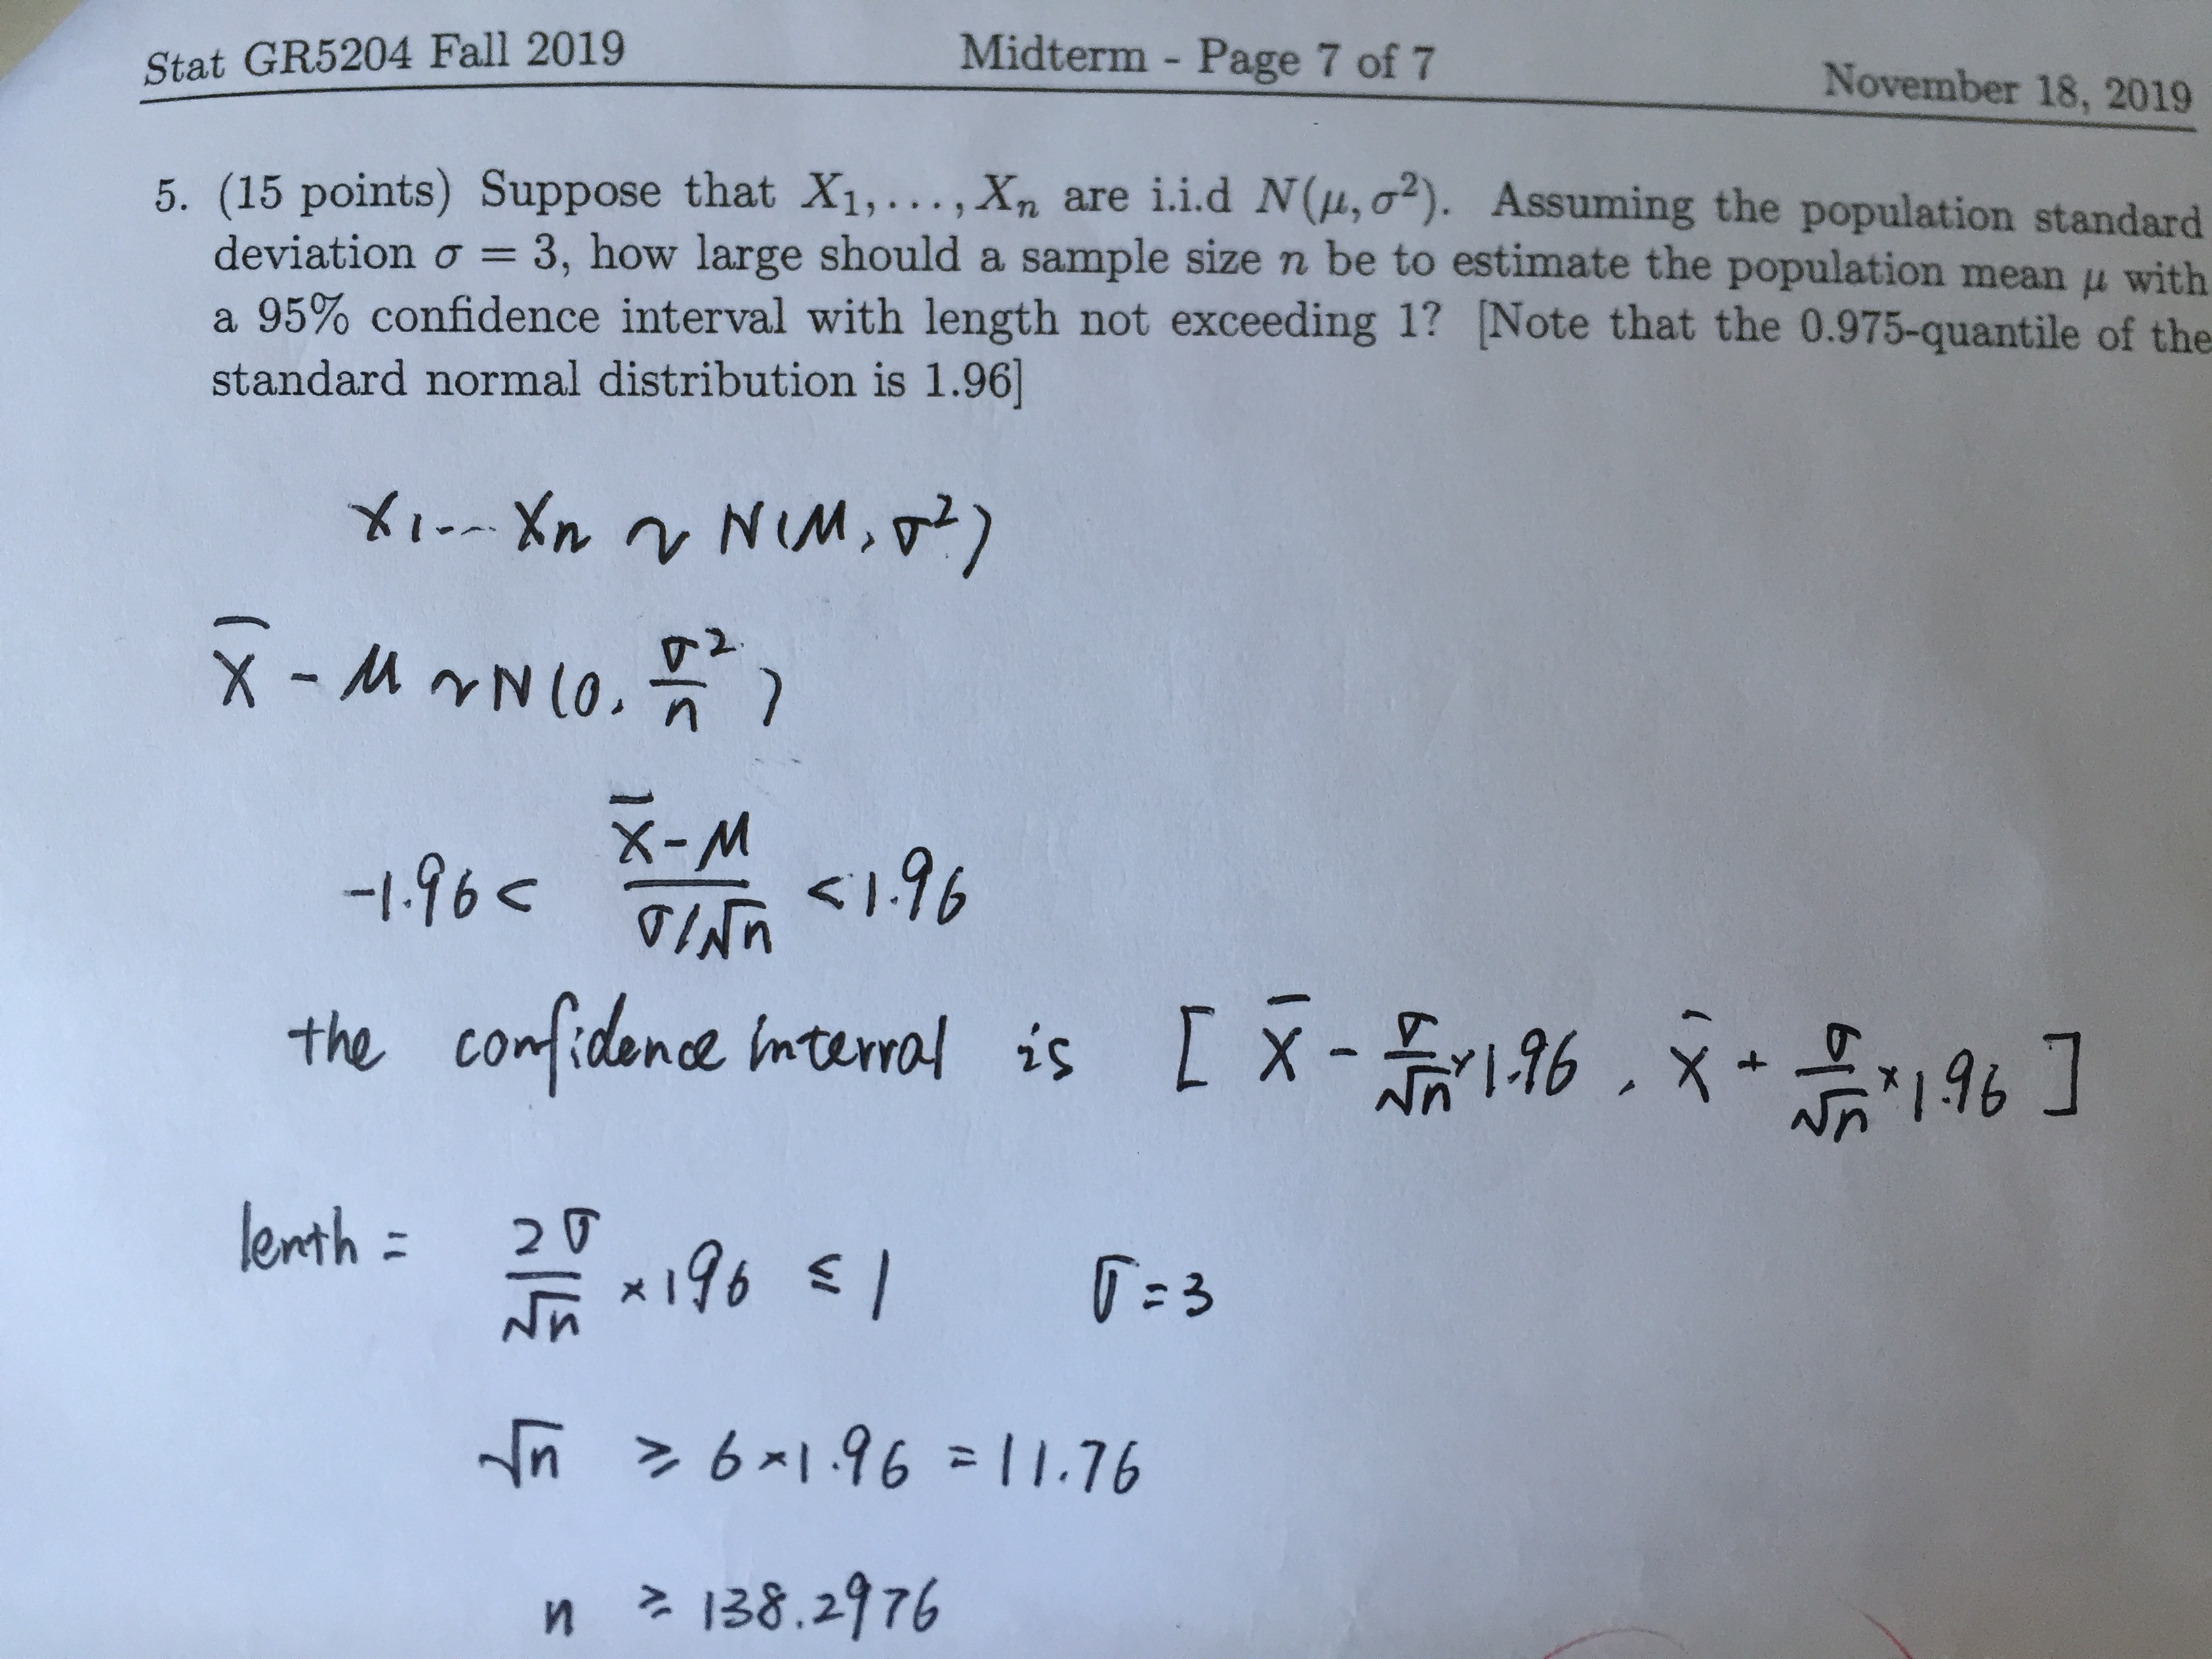 Stat GR5204 Fall 2019 Midterm - Page 7 of 7 November 18, 2019
5. (15 points) Suppose that X₁, . . . , Xₙ are i.i.d N(μ, σ²). Assuming the population standard
deviation σ = 3, how large should a sample size n be to estimate the population mean μ with
a 95% confidence interval with length not exceeding 1? [Note that the 0.975-quantile of the
standard normal distribution is 1.96]
X₁ --- Xₙ ~ N(μ, σ²)
X̄ - μ ~ N(0, σ²/n)
-1.96 < (X̄-μ)/(σ/√n) < 1.96
the confidence interval is [X̄ - σ/√n × 1.96, X̄ + σ/√n × 1.96]
lenth = 2σ/√n × 196 ≤ 1 σ = 3
√n ≥ 6 × 1.96 = 11.76
n ≥ 138.2976